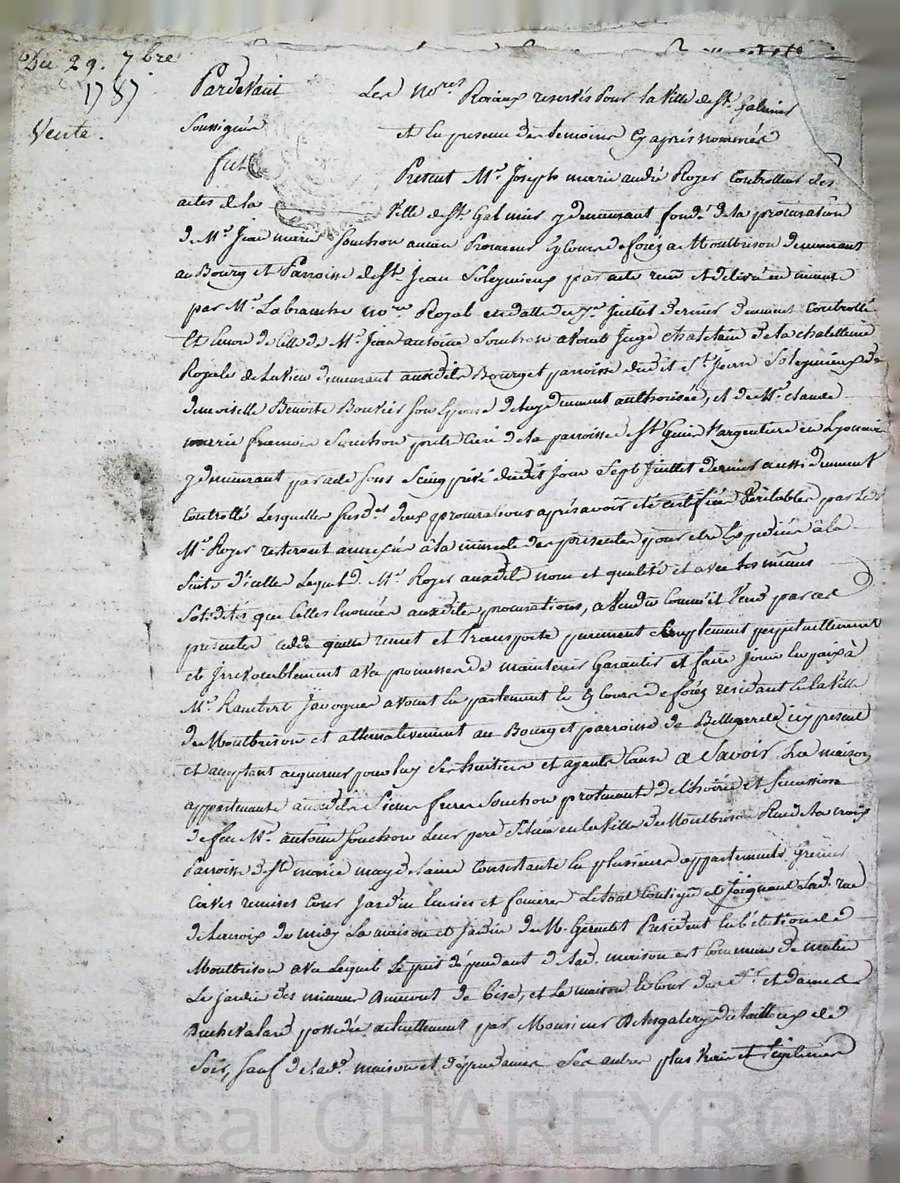 Du 29. 7bre
1787.
Vente.
Pardevant Les Nores Roiaux reservés Pour la Ville de St. Galmier
soussignés et en presence des temoins cy après nommés
fut Present Mr. Joseph marie andré Royer Controlleur des
actes de la Ville de St. Galmier y demeurant fondé de la procuration
de Mr. Jean marie Souchon ancien Procureur en Cour de forez a Montbrison demeurant
au Bourg et Parroisse de St. Jean Soleymieux par acte recu et delivré en minute
par Mr. Labranche nore Royal en datte du 7me Juillet dernier duement Controllé
Et encore de celle de Mr. Jean antoine Souchon avocat Juge Chatelain de la chatellenie
Royale de Lavieu demeurant audit Bourg et parroisse dudit St. Jean Soleymieux de
demoiselle Benoite Bouvier son Epouse de luy duement authorisée, et de Mr. claude
marie francois Souchon pretre Curé de la parroisse St Genis l'argentiere en Lyonnois
y demeurant par acte sous seing privé dudit jour Sept Juillet dernier aussi duement
Controllé Lesquelles susdes deux procurations après avoir eté certifiées Veritables par led.
Mr. Royer resteront annexées à la minute des presentes pour etre Expediées à la
suite d'icelles Lequel d. Mr. Royer auxdits nom et qualité et avec les mêmes
Solidités que celles enoncées auxdites procurations, a Vendu comme il Vend par ces
presentes cede quitte remet et transporte purement simplement perpetuellement
et Irrevocablement avec promesse de maintenir Garantir et faire Jouir en paix à
Mr. Rambert Javogues avocat en parlement et en Cour de forez residant en la Ville
de Montbrison et alternativement au Bourg et parroisse de Bellegarde icy present
et acceptant acquereur pour luy ses heritiers et ayants cause a Savoir La maison
appartenante auxdits Sieurs freres Souchon provenante de l'hoirie et succession
de feu Mr. antoine Souchon leur pere située en la Ville de Montbrison Rue de la croix
Parroisse de Ste marie magdelaine Consistante en plusieurs appartements Greniers
Caves remises Cour Jardin Ecuries et feniere Le tout Contigu et Joignant lad. rue
de la croix de midy La maison et Jardin de Mr. President en l'élection de
Montbrison avec Lequel Le puit dépendant de lad. maison est Commun de matin
Le Jardin des de bise, et la maison et Cour des Sr. et dames
possedée actuellement par Monsieur de
Soir, sauf de lad. maison et dépendances ses autres plus Vrais et
Pascal CHAREYRON